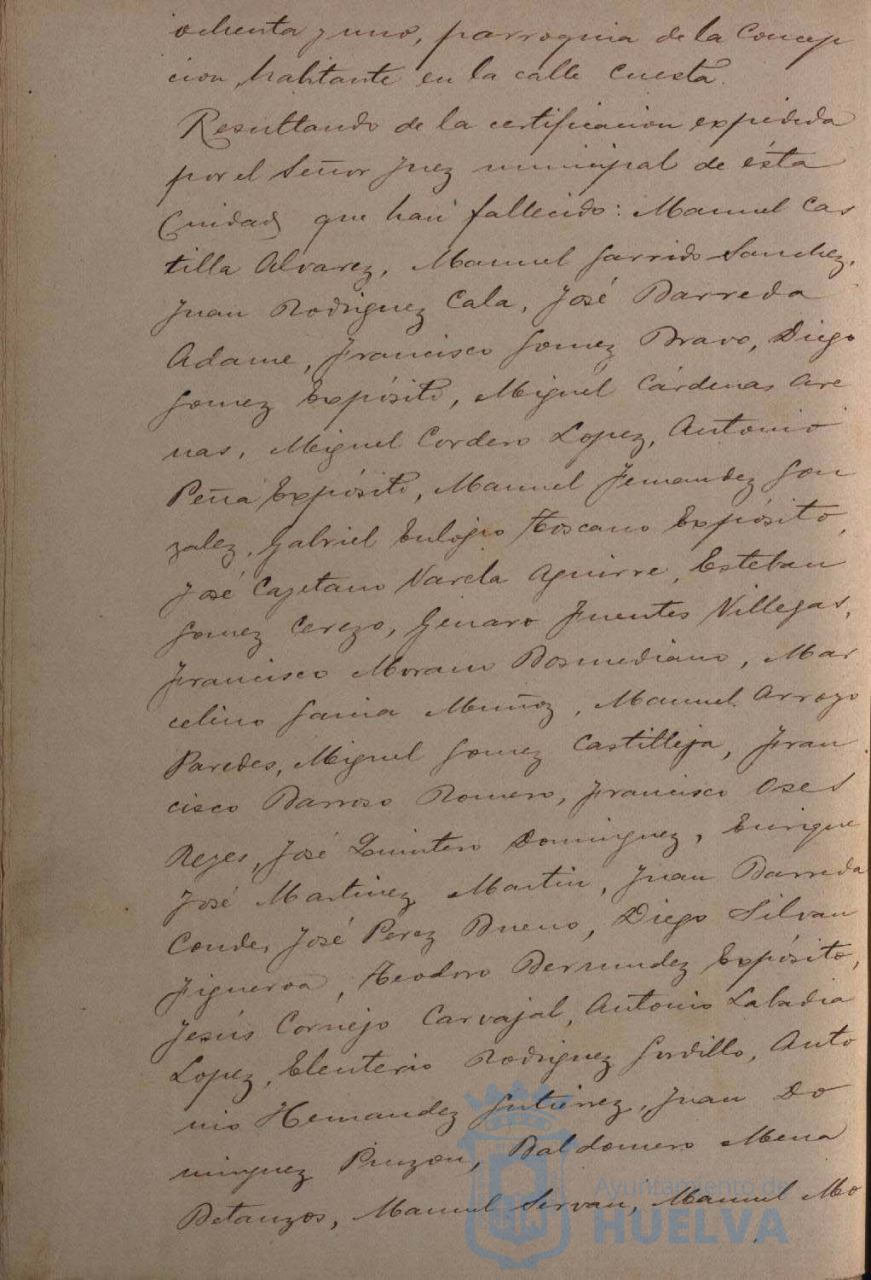 ochenta y uno, parroquia de la Concep
cion, habitante en la calle Cuesta.
Resultando de la certificacion expedida
por el Señor Juez municipal de ésta
Ciudad que han fallecido: Manuel Cas
tilla Alvarez, Manuel Garrido Sanchez,
Juan Rodriguez Cala, José Barreda
Adame, Francisco Gomez Bravo, Diego
Gomez Expósito, Miguel Cárdenas Are
nas, Miguel Cordero Lopez, Antonio
Peña Expósito, Manuel Fernandez Gon
zalez, Gabriel Eulogio Toscano Expósito,
José Cayetano Varela Aguirre, Esteban
Gomez Cerezo, Genaro Fuentes Villegas,
Francisco Moram Bosmediano, Mar
celino Garcia Muñoz, Manuel Arroyo
Paredes, Miguel Gomez Castilleja, Fran
cisco Barroso Romero, Francisco Oses
Reyes, José Quintero Dominguez, Enrique
José Martinez Martin, Juan Barreda
Conde, José Perez Bueno, Diego Silvan
Figueroa, Teodoro Bermudez Expósito,
Jesús Cornejo Carvajal, Antonio Labadia
Lopez, Eleuterio Rodriguez Gordillo, Anto
nio Hernandez Gutierrez, Juan Do
minguez Pinzon, Baldomero Mena
Betanzos, Manuel Servan, Manuel Mo
Ayuntamiento de
HUELVA